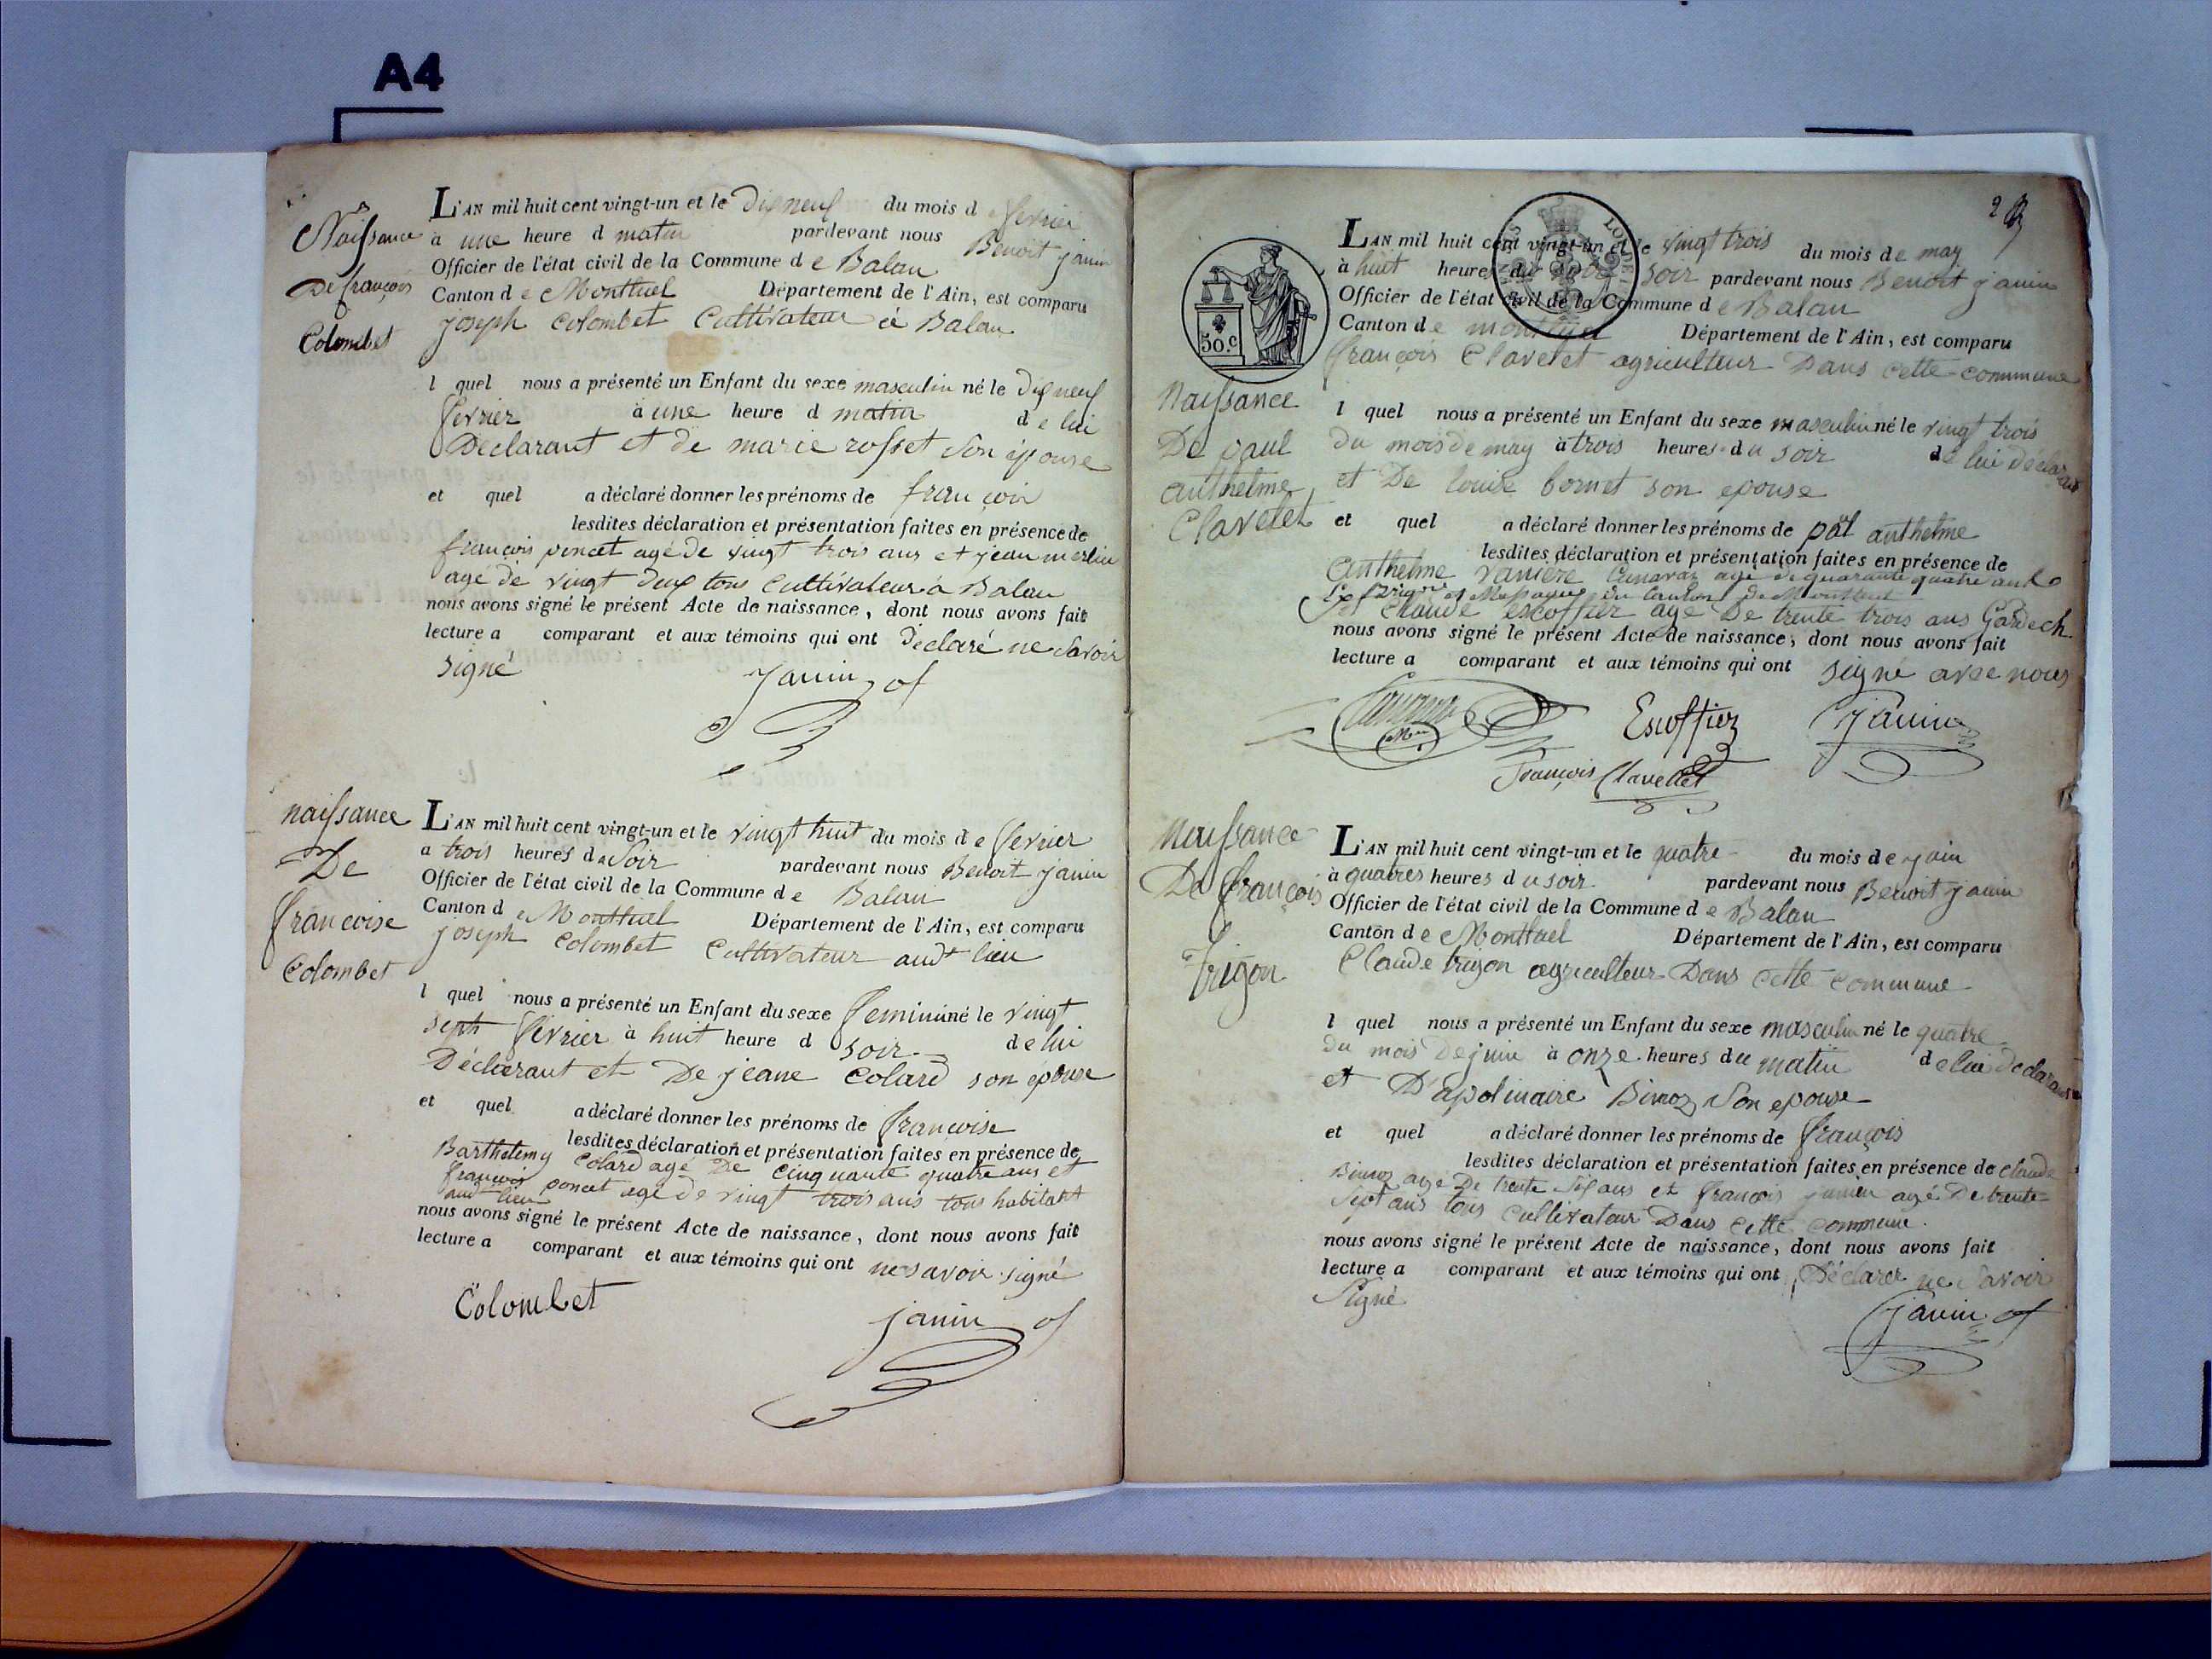 A4
Naissance
De françois
Colombet
L'AN mil huit cent vingt-un et le dixneuf du mois d fevrier
à une heure d matin pardevant nous Benoit janin
Officier de l'état civil de la Commune de Balan
Canton de Montluel Département de l'Ain, est comparu
joseph Colombet Cultivateur à Balan
l quel nous a présenté un Enfant du sexe masculin né le dixneuf
fevrier à une heure d matin de lui
Déclarant et de marie rosset son épouse
et quel a déclaré donner les prénoms de françois
lesdites déclaration et présentation faites en présence de
françois poncet agé de vingt trois ans et jean merlin
agé de vingt deux tous Cultivateur à Balan
nous avons signé le présent Acte de naissance, dont nous avons fait
lecture a comparant et aux témoins qui ont declaré ne savoir
signé
Janin of
naissance
De
francoise
Colombet
L'AN mil huit cent vingt-un et le vingt huit du mois de fevrier
a trois heures du soir pardevant nous Benoit janin
Officier de l'état civil de la Commune de Balan
Canton de Montluel Département de l'Ain, est comparu
joseph Colombet Cultivateur audt lieu
l quel nous a présenté un Enfant du sexe feminin né le vingt
sept fevrier à huit heure d soir de lui
Déclarant et De jeane Colard son epouse
et quel a déclaré donner les prénoms de francoise
lesdites déclaration et présentation faites en présence de
Barthelemy Colard agé De cinquante quatre ans et
françois poncet agé de vingt trois ans tous habitant
audt lieu
nous avons signé le présent Acte de naissance, dont nous avons fait
lecture a comparant et aux témoins qui ont ne savoir signé
Colombet janin of
2
50.c
Naissance
De paul
anthelme
Clavelet
L'AN mil huit cent vingt-un et le vingt trois du mois de may
à huit heures du soir pardevant nous Benoit janin
Officier de l'état civil de la Commune de Balan
Canton de montluel Département de l'Ain, est comparu
françois Clavelet agriculteur Dans cette commune
l quel nous a présenté un Enfant du sexe masculin né le vingt trois
du mois de may à trois heures du soir de lui déclarant
et De louise bornet son epouse
et quel a déclaré donner les prénoms de paul anthelme
lesdites déclaration et présentation faites en présence de
anthelme agé de quarante quatre ans
du Canton de Montluel
Claude escoffier agé De trente trois ans
nous avons signé le présent Acte de naissance, dont nous avons fait
lecture a comparant et aux témoins qui ont signé avec nous
Escoffier Janin
François Clavellet
Naissance
De françois
trigon
L'AN mil huit cent vingt-un et le quatre du mois de juin
à quatres heures du soir pardevant nous Benoit janin
Officier de l'état civil de la Commune de Balan
Canton de Montluel Département de l'Ain, est comparu
Claude trigon agriculteur Dans cette commune
l quel nous a présenté un Enfant du sexe masculin né le quatre
du mois de juin à onze heures du matin de lui declarant
et D'apolinaire Bimoz son epouse
et quel a déclaré donner les prénoms de françois
lesdites déclaration et présentation faites en présence de claude
Bimoz agé De trente six ans et françois agé De trente
sept ans tous cultivateur Dans cette commune
nous avons signé le présent Acte de naissance, dont nous avons fait
lecture a comparant et aux témoins qui ont Déclarer ne savoir
signé
Janin of